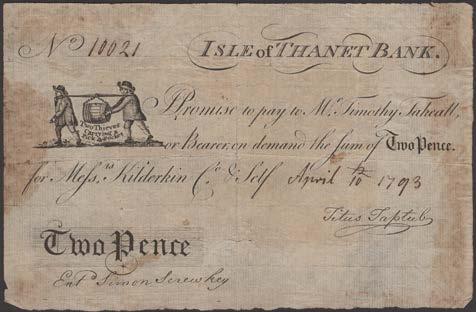 No 10021
ISLE of THANET BANK.
I Promise to pay to Mr. Timothy Takeall,
or Bearer, on demand the sum of Two Pence.
Two Thieves
Carrying a
for Messrs. Kilderkin Co. & Self April 10 1793
Titus Taptub
Two Pence
Entd. Simon Screwkey